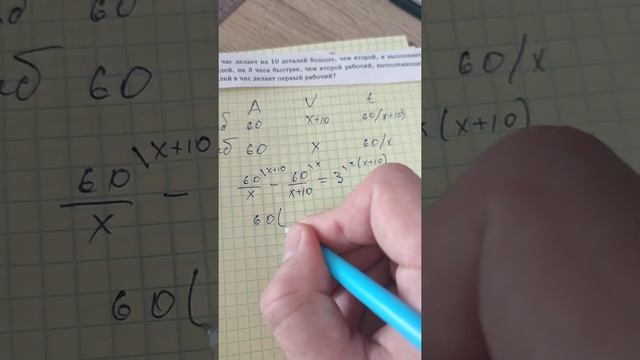 час делает на 10 деталей больше, чем второй, и выполняет
на 3 часа быстрее, чем второй рабочий, выполняющий
в час делает первый рабочий?
A V t
60 x+10 60/(x+10)
60 x 60/x
60/x \x+10 − 60/(x+10) \x = 3 \x(x+10)
60(